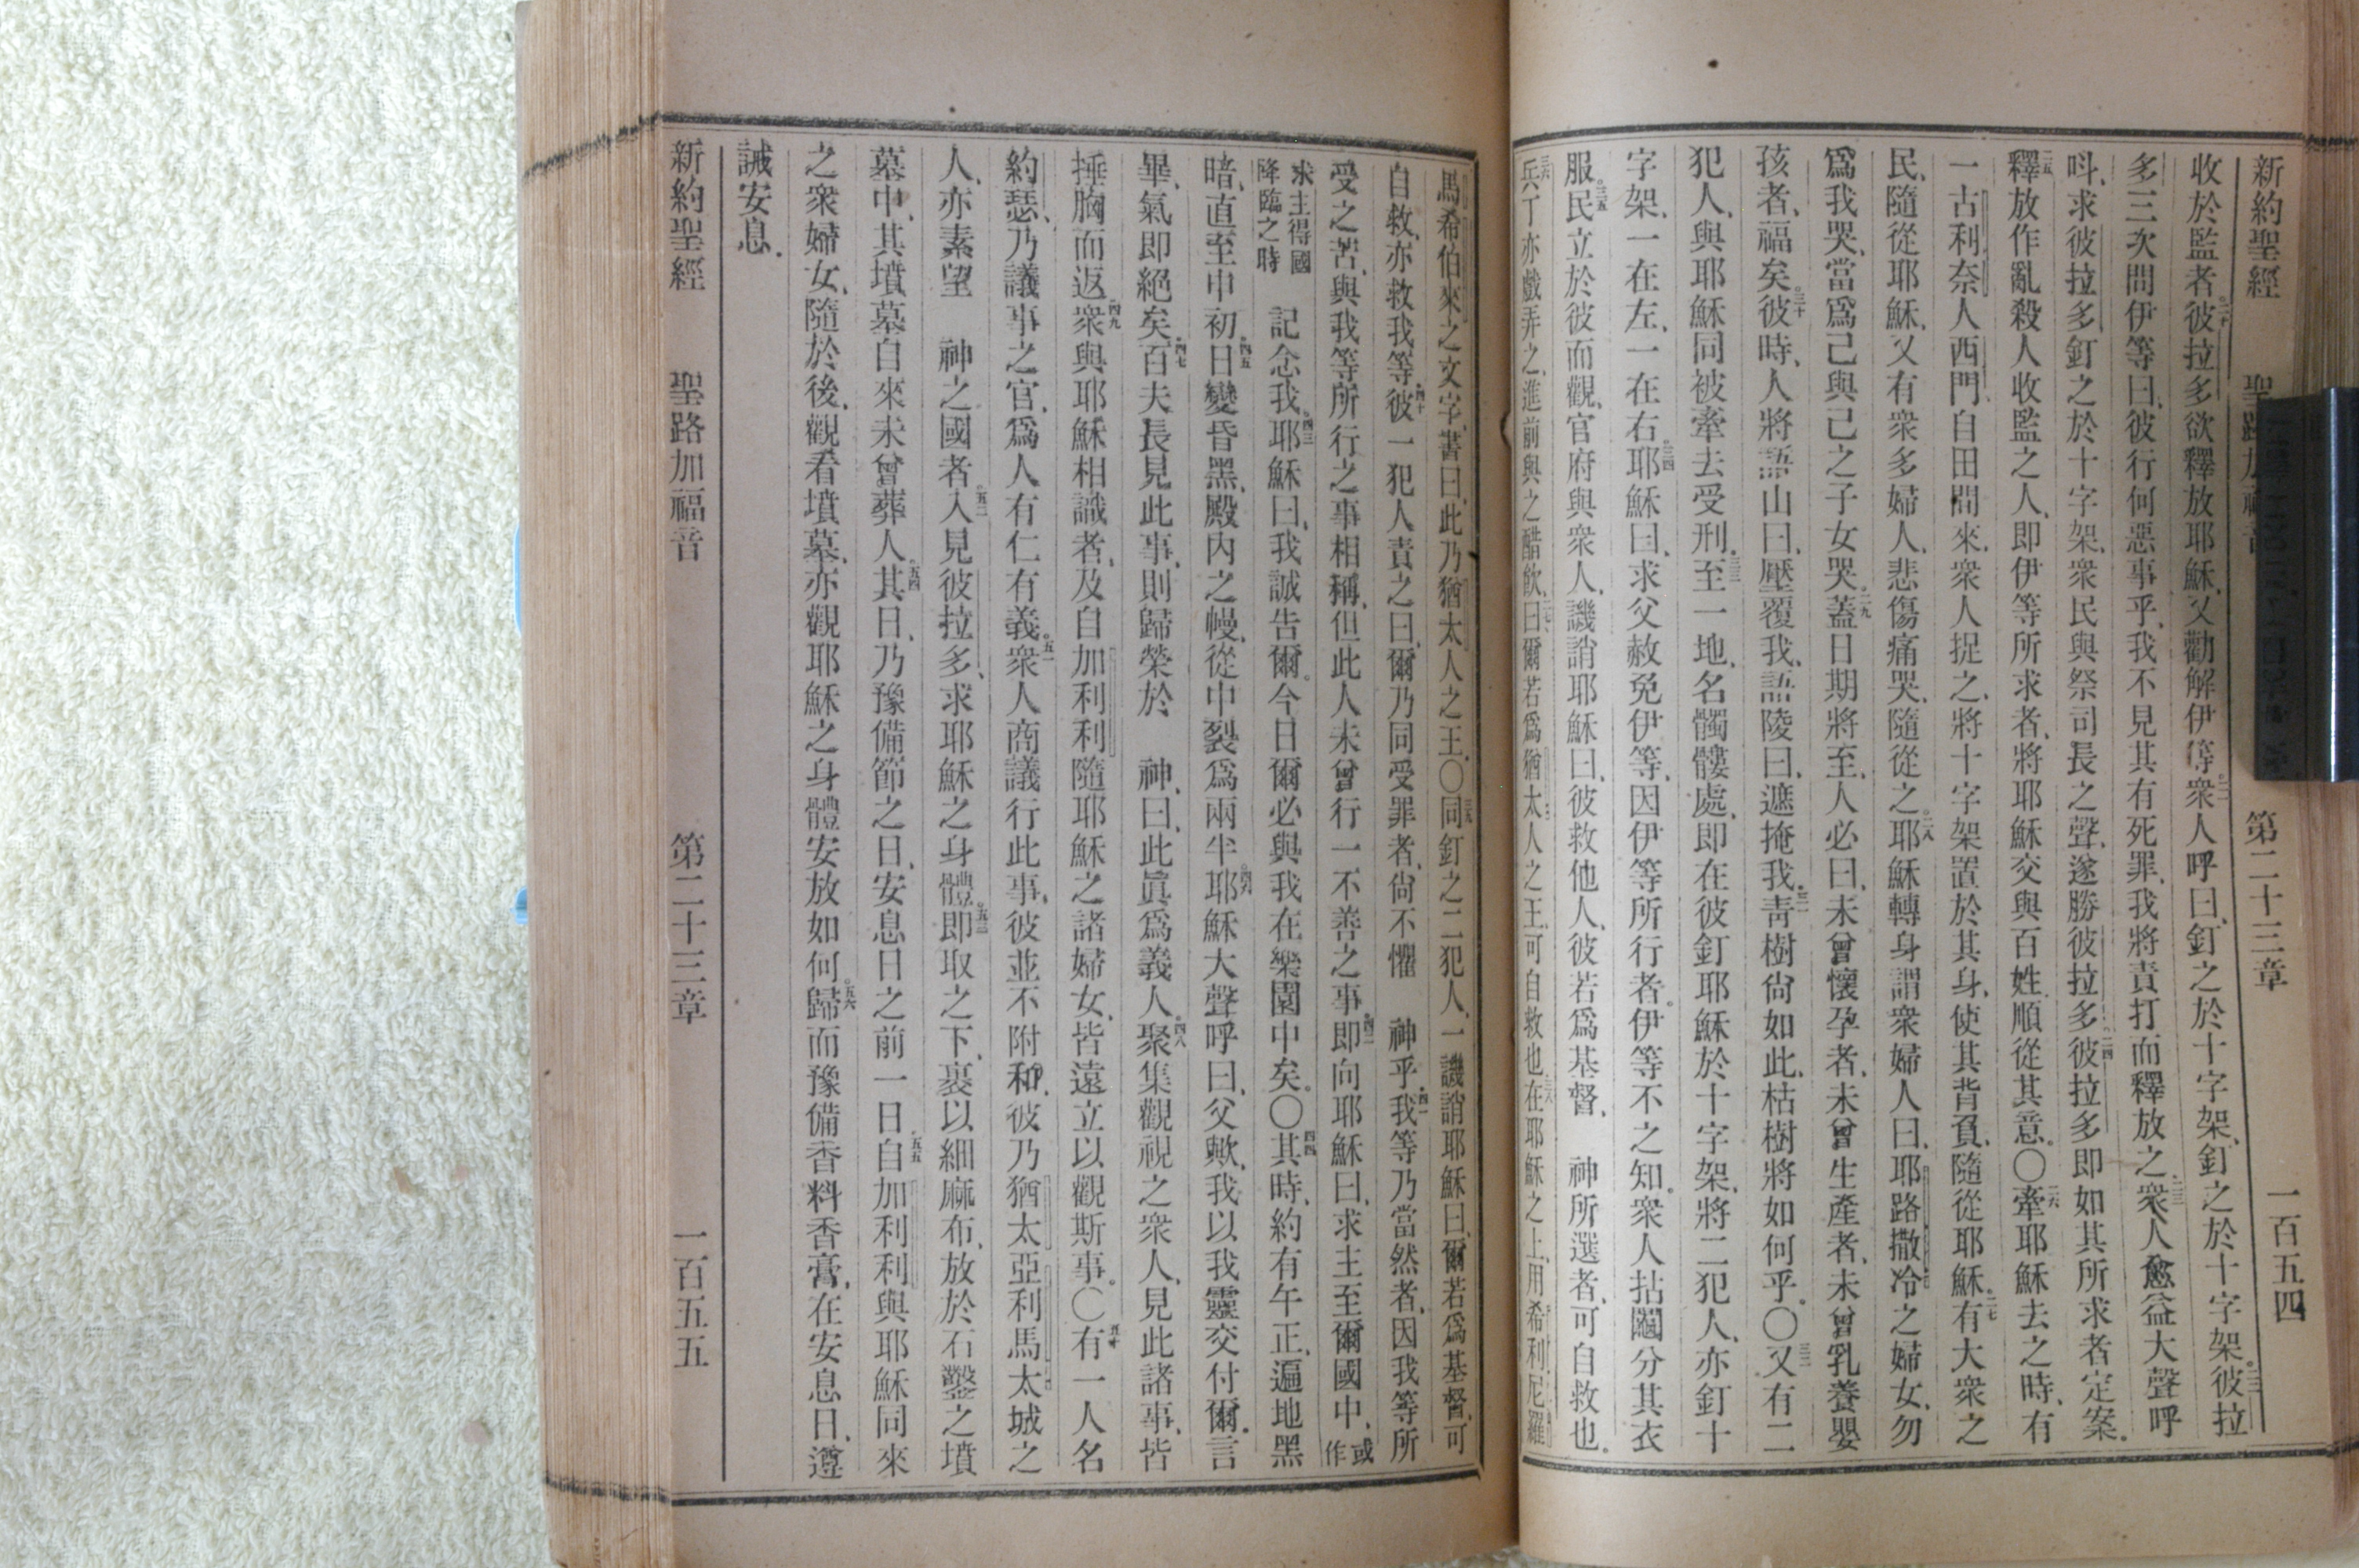 新約聖經 聖路加福音 第二十三章 一百五四
收於監者。二十彼拉多欲釋放耶穌、又勸解伊等。二一衆人呼曰、釘之於十字架、釘之於十字架。二二彼拉
多三次問伊等曰、彼行何惡事乎、我不見其有死罪、我將責打而釋放之。二三衆人愈益大聲呼
呌、求彼拉多釘之於十字架、衆民與祭司長之聲、遂勝彼拉多。二四彼拉多即如其所求者定案。
二五釋放作亂殺人收監之人、即伊等所求者、將耶穌交與百姓順從其意。〇二六牽耶穌去之時、有
一古利奈人西門、自田間來、衆人捉之、將十字架置於其身、使其背負、隨從耶穌。二七有大衆之
民、隨從耶穌、又有衆多婦人、悲傷痛哭、隨從之。二八耶穌轉身謂衆婦人曰、耶路撒冷之婦女、勿
爲我哭、當爲己與己之子女哭。二九蓋日期將至、人必曰、未曾懷孕者、未曾生產者、未曾乳養嬰
孩者、福矣。三十彼時、人將語山曰、壓覆我、語陵曰、遮掩我。三一靑樹尙如此、枯樹將如何乎。〇三二又有二
犯人、與耶穌同被牽去受刑。三三至一地、名髑髏處、即在彼釘耶穌於十字架、將二犯人、亦釘十
字架、一在左、一在右。三四耶穌曰、求父赦免伊等、因伊等所行者。伊等不之知。衆人拈鬮分其衣
服。三五民立於彼而觀、官府與衆人、譏誚耶穌曰、彼救他人、彼若爲基督、 神所選者、可自救也。
三六兵丁亦戲弄之、進前與之醋飲、三七曰爾若爲猶太人之王、可自救也、三八在耶穌之上、用希利尼羅
馬希伯來之文字、書曰、此乃猶太人之王、〇三九同釘之二犯人、一譏誚耶穌曰、爾若爲基督、可
自救、亦救我等。四十彼一犯人責之曰、爾乃同受罪者、尙不懼 神乎。四一我等乃當然者、因我等所
受之苦、與我等所行之事相稱、但此人未曾行一不善之事。四二即向耶穌曰、求主至爾國中、或作
求主得國降臨之時 記念我。四三耶穌曰、我誠告爾。今日爾必與我在樂園中矣。〇四四其時、約有午正、遍地黑
暗、直至申初。四五日變昏黑、殿內之幔、從中裂爲兩半。四六耶穌大聲呼曰、父歟、我以我靈交付爾。言
畢、氣即絕矣。四七百夫長見此事、則歸榮於 神、曰、此眞爲義人。四八聚集觀視之衆人、見此諸事、皆
捶胸而返。四九衆與耶穌相識者、及自加利利隨耶穌之諸婦女、皆遠立以觀斯事。〇五十有一人名
約瑟、乃議事之官、爲人有仁有義。五一衆人商議行此事、彼並不附和、彼乃猶太亞利馬太城之
人、亦素望 神之國者。五二入見彼拉多、求耶穌之身體。五三即取之下、裹以細麻布、放於石鑿之墳
墓中、其墳墓自來未曾葬人。五四其日、乃豫備節之日、安息日之前一日。五五自加利利與耶穌同來
之衆婦女、隨於後、觀看墳墓、亦觀耶穌之身體安放如何。五六歸而豫備香料香膏、在安息日、遵
誡安息。
新約聖經 聖路加福音 第二十三章 一百五五